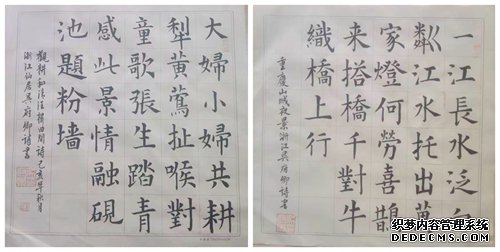 大婦小婦共耕
犁黃鶯扯喉對
童歌張生踏青
感此景情融硯
池題粉墻
觀耕和清 詩己亥年秋月
浙江仙居吳府卿詩書
一江長水泛
粼江水托出萬
家燈何勞喜鵲
来搭橋千對牛
織橋上行
重慶山城夜景浙江吳府卿詩書
织梦内容管理系统
DEDECMS.COM